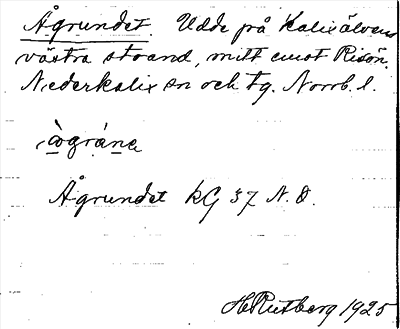 Ågrundet. Udde på Kalixälvens
västra strand, mitt emot Risön.
Nederkalix sn och tg. Norrb. l.
ågrund̩e
Ågrundet KG 37 N.O.
H Rutberg 1925